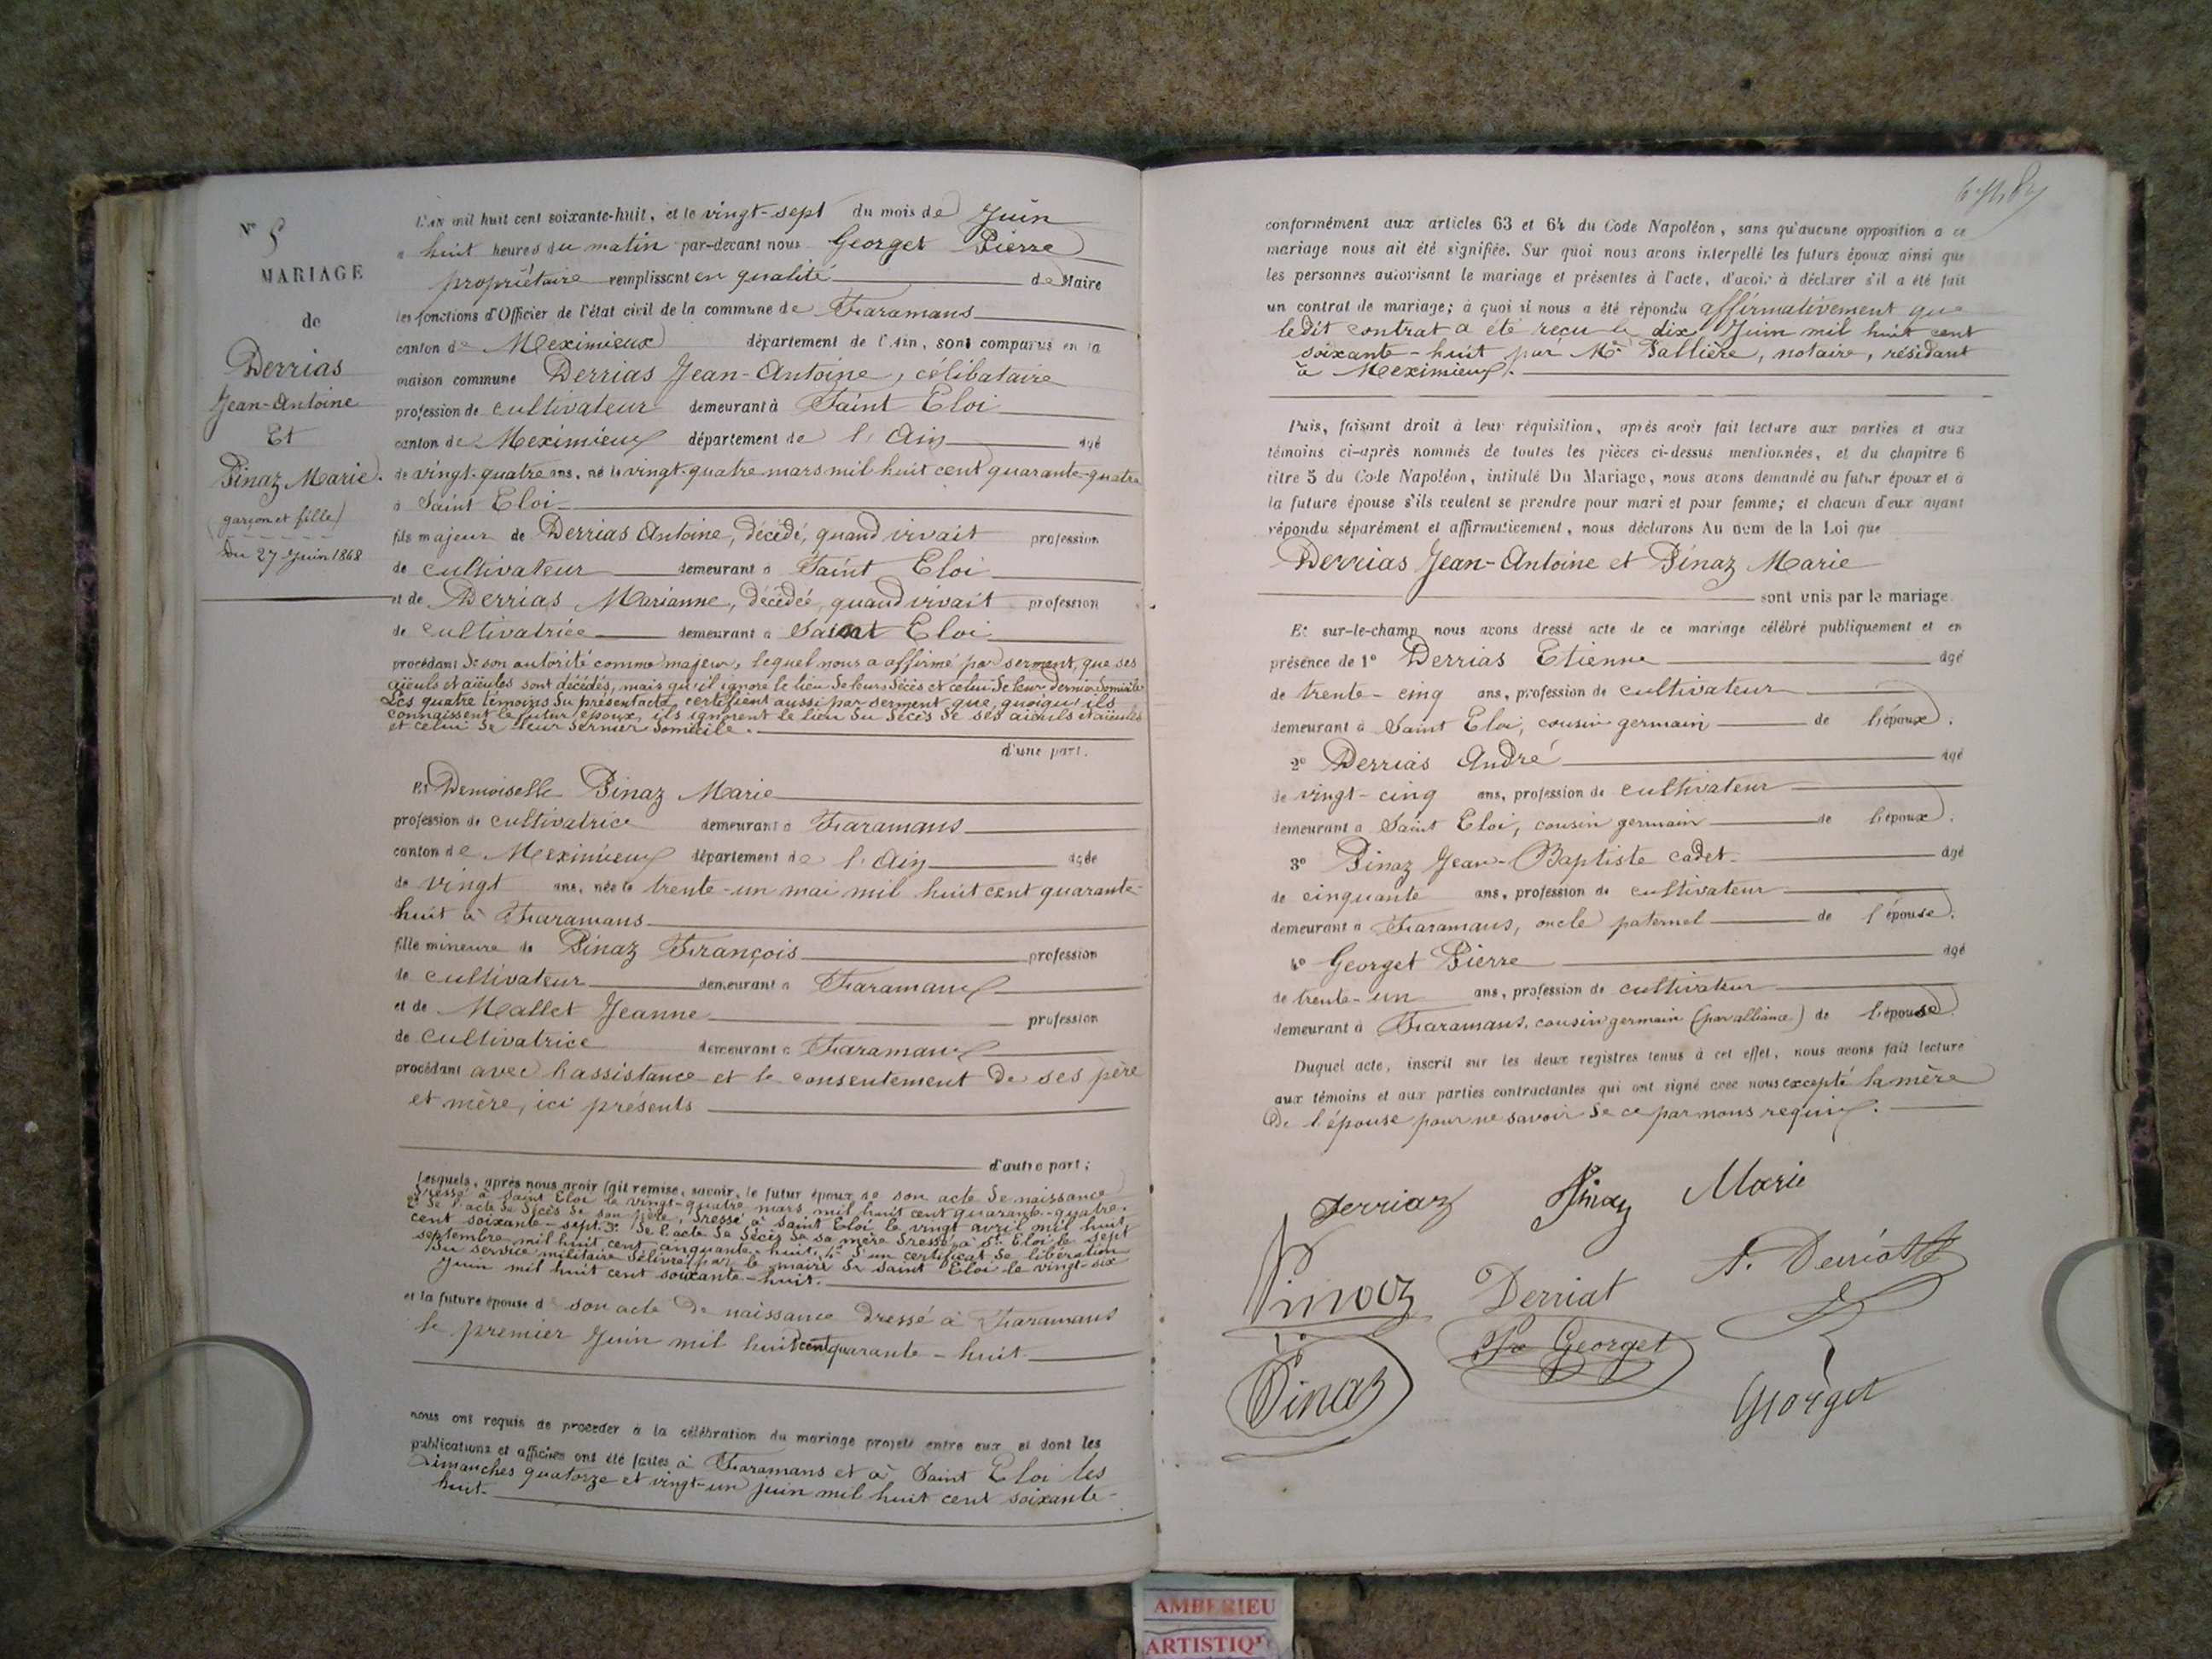 N° 5
MARIAGE
de
Derrias
Jean-Antoine
Et
Pinaz Marie.
(garçon et fille)
Du 27 Juin 1868
L'an mil huit cent soixante-huit, et le vingt-sept du mois de Juin
a huit heures du matin par-devant nous Georget Pierre
propriétaire remplissant en qualité de Maire
les fonctions d'Officier de l'état civil de la commune de Faramans
canton de Meximieux département de l'Ain, sont comparus en la
maison commune Derrias Jean-Antoine, célibataire
profession de cultivateur demeurant à Saint Eloi
canton de Meximieux département de l'Ain agé
de vingt-quatre ans, né le vingt-quatre mars mil huit cent quarante-quatre
à Saint Eloi
fils majeur de Derrias Antoine, décédé, quand vivait profession
de cultivateur demeurant à Saint Eloi
et de Derrias Marianne, décédée, quand vivait profession
de cultivatrice demeurant à Saint Eloi
procédant de son autorité comme majeur, lequel nous a affirmé par serment, que ses
aïeuls et aïeules sont décédés, mais qu'il ignore le lieu de leurs décès et celui de leur dernier domicile
Les quatre témoins du présent acte certifient aussi par serment que, quoiqu'ils
connaissent le futur époux, ils ignorent le lieu du décès de ses aïeuls et aïeules
et celui de leur dernier domicile.
d'une part.
Et Demoiselle Pinaz Marie
profession de cultivatrice demeurant à Faramans
canton de Meximieux département de l'Ain agée
de vingt ans, née le trente-un mai mil huit cent quarante-
huit à Faramans
fille mineure de Pinaz François profession
de cultivateur demeurant à Faramans
et de Mallet Jeanne profession
de cultivatrice demeurant à Faramans
procédant avec l'assistance et le consentement de ses père
et mère, ici présents
d'autre part;
Lesquels, après nous avoir fait remise, savoir, le futur époux de son acte de naissance
dressé à Saint Eloi le vingt-quatre mars mil huit cent quarante-quatre.
2° de l'acte de décès de son père, dressé à Saint Eloi le vingt avril mil huit
cent soixante-sept. 3° de l'acte de décès de sa mère dressé à St Eloi le sept
septembre mil huit cent cinquante-huit, 4° d'un certificat de libération
du service militaire délivré par le maire de Saint Eloi le vingt-six
Juin mil huit cent soixante-huit.
et la future épouse de son acte de naissance dressé à Faramans
le premier Juin mil huit cent quarante-huit
nous ont requis de procéder à la célébration du mariage projeté entre eux et dont les
publications et affiches ont été faites à Faramans et à Saint Eloi les
dimanches quatorze et vingt-un juin mil huit cent soixante-
huit.
conformément aux articles 63 et 64 du Code Napoléon, sans qu'aucune opposition a ce
mariage nous ait été signifiée. Sur quoi nous avons interpellé les futurs époux ainsi que
les personnes autorisant le mariage et présentes à l'acte, d'avoir à déclarer s'il a été fait
un contrat de mariage; à quoi il nous a été répondu affirmativement que
ledit contrat a été reçu le dix Juin mil huit cent
soixante-huit par Me Vallière, notaire, résidant
à Meximieux.
Puis, faisant droit à leur réquisition, après avoir fait lecture aux parties et aux
témoins ci-après nommés de toutes les pièces ci-dessus mentionnées, et du chapitre 6
titre 5 du Code Napoléon, intitulé Du Mariage, nous avons demandé au futur époux et à
la future épouse s'ils veulent se prendre pour mari et pour femme; et chacun d'eux ayant
répondu séparément et affirmativement, nous déclarons Au nom de la Loi que
Derrias Jean-Antoine et Pinaz Marie
sont unis par le mariage.
Et sur-le-champ nous avons dressé acte de ce mariage célébré publiquement et en
présence de 1° Derrias Etienne agé
de trente-cinq ans, profession de cultivateur
demeurant à Saint Eloi, cousin germain de l'époux.
2° Derrias André agé
de vingt-cinq ans, profession de cultivateur
demeurant à Saint Eloi, cousin germain de l'époux.
3° Pinaz Jean-Baptiste cadet agé
de cinquante ans, profession de cultivateur
demeurant à Faramans, oncle paternel de l'épouse.
4° Georget Pierre agé
de trente-un ans, profession de cultivateur
demeurant à Faramans, cousin germain (par alliance) de l'épouse.
Duquel acte, inscrit sur les deux registres tenus à cet effet, nous avons fait lecture
aux témoins et aux parties contractantes qui ont signé avec nous excepté la mère
De l'épouse pour ne savoir de ce par nous requis.
Derriaz Pinaz Marie
Pinaz Derriat
Georget
Pinaz Georget
AMBERIEU
ARTISTIQ